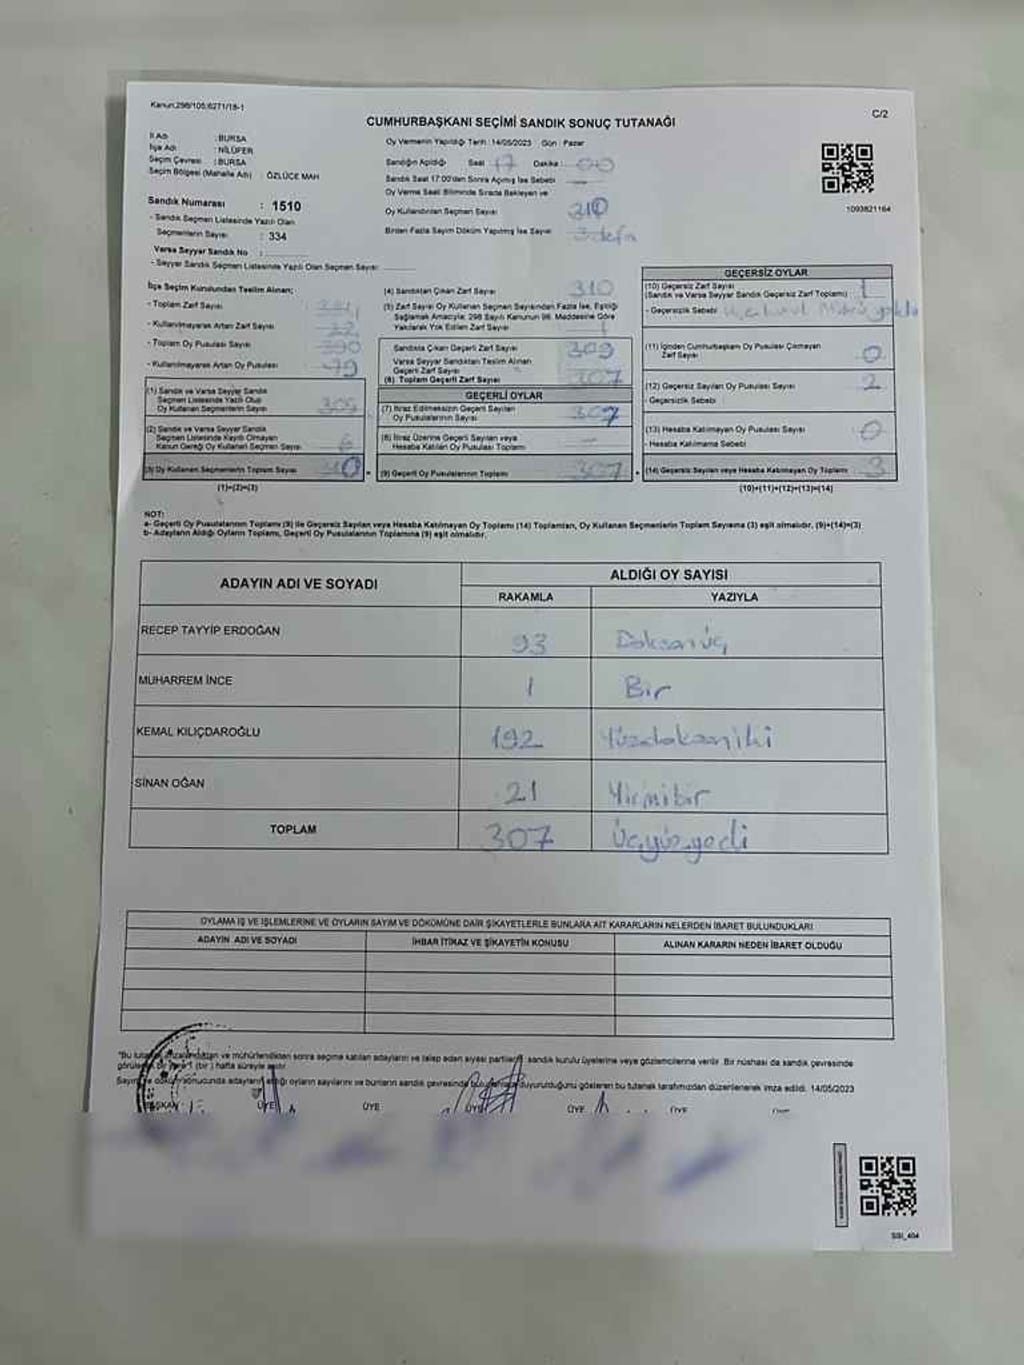 Kanun:298/105;6271/18-1
C/2
CUMHURBAŞKANI SEÇİMİ SANDIK SONUÇ TUTANAĞI
İl Adı : BURSA
İlçe Adı : NİLÜFER
Seçim Çevresi : BURSA
Seçim Bölgesi (Mahalle Adı) : ÖZLÜCE MAH
Sandık Numarası : 1510
- Sandık Seçmen Listesinde Yazılı Olan
Seçmenlerin Sayısı : 334
Varsa Seyyar Sandık No :
- Seyyar Sandık Seçmen Listesinde Yazılı Olan Seçmen Sayısı:
Oy Vermenin Yapıldığı Tarih : 14/05/2023 Gün : Pazar
Sandığın Açıldığı Saat : 17 Dakika : 00
Sandık Saat 17:00'den Sonra Açılmış İse Sebebi
Oy Verme Saati Bitiminde Sırada Bekleyen ve
Oy Kullandırılan Seçmen Sayısı 310
Birden Fazla Sayım Döküm Yapılmış İse Sayısı 3 defa
1093821164
İlçe Seçim Kurulundan Teslim Alınan;
- Toplam Zarf Sayısı
- Kullanılmayarak Artan Zarf Sayısı 22
- Toplam Oy Pusulası Sayısı 390
- Kullanılmayarak Artan Oy Pusulası 79
(1) Sandık ve Varsa Seyyar Sandık
Seçmen Listesinde Yazılı Olup
Oy Kullanan Seçmenlerin Sayısı
(2) Sandık ve Varsa Seyyar Sandık
Seçmen Listesinde Kayıtlı Olmayan
Kanun Gereği Oy Kullanan Seçmen Sayısı
(3) Oy Kullanan Seçmenlerin Toplam Sayısı 310
(1)+(2)=(3)
(4) Sandıktan Çıkan Zarf Sayısı 310
(5) Zarf Sayısı Oy Kullanan Seçmen Sayısından Fazla İse, Eşitliği
Sağlamak Amacıyla; 298 Sayılı Kanunun 98. Maddesine Göre
Yakılarak Yok Edilen Zarf Sayısı
Sandıkta Çıkan Geçerli Zarf Sayısı 309
Varsa Seyyar Sandıktan Teslim Alınan
Geçerli Zarf Sayısı
(6) Toplam Geçerli Zarf Sayısı 307
GEÇERLİ OYLAR
(7) İtiraz Edilmeksizin Geçerli Sayılan
Oy Pusulalarının Sayısı 307
(8) İtiraz Üzerine Geçerli Sayılan veya
Hesaba Katılan Oy Pusulası Toplamı -
(9) Geçerli Oy Pusulalarının Toplamı 307
GEÇERSİZ OYLAR
(10) Geçersiz Zarf Sayısı
(Sandık ve Varsa Seyyar Sandık Geçersiz Zarf Toplamı) : 1
- Geçersizlik Sebebi :
(11) İçinden Cumhurbaşkanı Oy Pusulası Çıkmayan
Zarf Sayısı 0
(12) Geçersiz Sayılan Oy Pusulası Sayısı 2
- Geçersizlik Sebebi :
(13) Hesaba Katılmayan Oy Pusulası Sayısı 0
- Hesaba Katılmama Sebebi
(14) Geçersiz Sayılan veya Hesaba Katılmayan Oy Toplamı 3
(10)+(11)+(12)+(13)=(14)
NOT:
a- Geçerli Oy Pusulalarının Toplamı (9) ile Geçersiz Sayılan veya Hesaba Katılmayan Oy Toplamı (14) Toplamları, Oy Kullanan Seçmenlerin Toplam Sayısına (3) eşit olmalıdır. (9)+(14)=(3)
b- Adayların Aldığı Oyların Toplamı, Geçerli Oy Pusulalarının Toplamına (9) eşit olmalıdır.
ADAYIN ADI VE SOYADI
ALDIĞI OY SAYISI
RAKAMLA YAZIYLA
RECEP TAYYİP ERDOĞAN 93 Doksanüç
MUHARREM İNCE 1 Bir
KEMAL KILIÇDAROĞLU 192 Yüzdoksaniki
SİNAN OĞAN 21 Yirmibir
TOPLAM 307 Üçyüzyedi
OYLAMA İŞ VE İŞLEMLERİNE VE OYLARIN SAYIM VE DÖKÜMÜNE DAİR ŞİKAYETLERLE BUNLARA AİT KARARLARIN NELERDEN İBARET BULUNDUKLARI
ADAYIN ADI VE SOYADI İHBAR İTİRAZ VE ŞİKAYETİN KONUSU ALINAN KARARIN NEDEN İBARET OLDUĞU
"Bu ve mühürlendikten sonra seçime katılan adayların ve talep eden siyasi partilerin sandık kurulu üyelerine veya gözlemcilerine verilir. Bir nüshası da sandık çevresinde
1 (bir) hafta süreyle asılır.
Sayım ve döküm sonucunda adayların aldığı oyların sayılarını ve bunların sandık çevresinde duyurulduğunu gösteren bu tutanak tarafımızdan düzenlenerek imza edildi. 14/05/2023
BAŞKAN ÜYE ÜYE ÜYE ÜYE ÜYE ÜYE
SSI_404